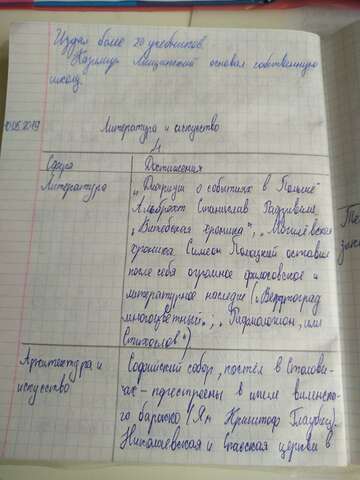 Издал более 20 учебников.
Казимир Лищинский основал собственную
школу.
Литература и искусство
Сфера Достижения
Литература „Диариуш о событиях в Польше"
Альбрехт Станислав Радзивилл.
„Витебская хроника", „Могилёвская
хроника. Симеон Полоцкий оставил
после себя огромное философское и
литературное наследие („Вертоград
многоцветный"; „Рифмологион, или
Стихослов")
Архитектура и Софийский собор, костёл в Столови-
искусство чах – перестроены в стиле виленско-
го барокко (Ян Криштоф Глаубиц).
Николаевская и Спасская церкви в